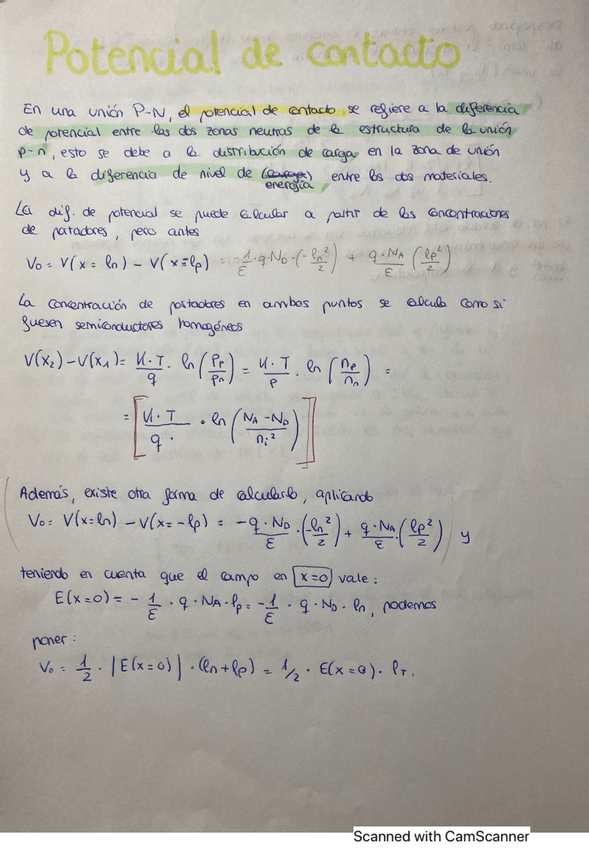 Potencial de contacto
En una unión P-N, el potencial de contacto se refiere a la diferencia
de potencial entre las dos zonas neutras de la estructura de la unión
p-n, esto se debe a la distribución de carga en la zona de unión
y a la diferencia de nivel de (carga) entre los dos materiales.
energía
La dif. de potencial se puede calcular a partir de las concentraciones
de portadores, pero antes
V₀ = V(x = ln) - V(x = lp) = -1/ε · q · N_D · (-ln²/2) + q · N_A/ε (lp²/2)
La concentración de portadores en ambos puntos se calcula como si
fuesen semiconductores homogéneos
V(x₂) - V(x₁) = K·T/q · ln (Pp/Pn) = K·T/p · ln (np/nn) =
= [K·T/q · ln (N_A - N_D / ni²)]
Además, existe otra forma de calcularlo, aplicando
V₀ = V(x = ln) - V(x = -lp) = -q · N_D/ε · (-ln²/2) + q · N_A/ε · (lp²/2) y
teniendo en cuenta que el campo en x=0 vale:
E(x=0) = - 1/ε · q · N_A · lp = - 1/ε · q · N_D · ln, podemos
poner:
V₀ = 1/2 · |E(x=0)| · (ln + lp) = 1/2 · E(x=0) · l_T.
Scanned with CamScanner